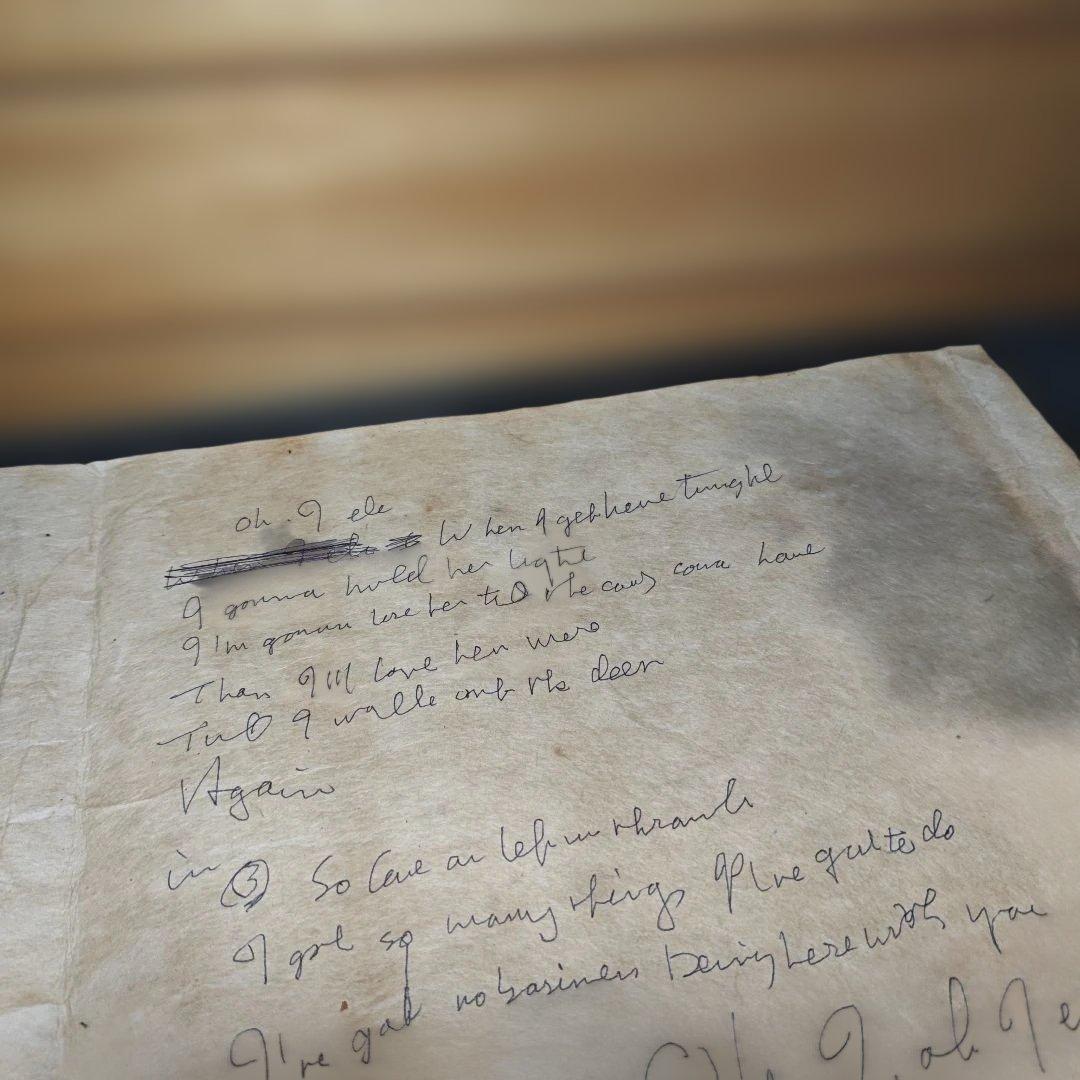 Oh. I
When I get home tonight
I gonna hold her tight
I I'm gonna love her till the cows come home
Than I'll love her more
Till I walk out the door
Again
in ③ So
I got so many things I I've got to do
I've got no business being here with you
Oh I, oh I